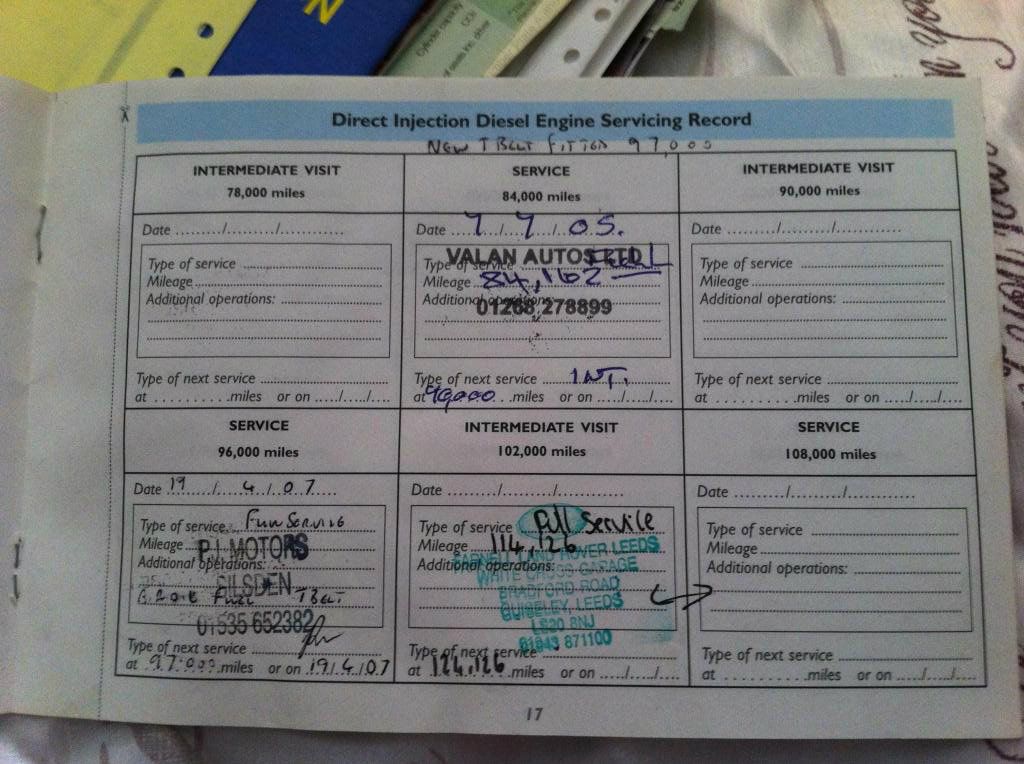 Direct Injection Diesel Engine Servicing Record
NEW T BELT FITTED 97,000
INTERMEDIATE VISIT
78,000 miles
Date ....../....../............
Type of service
Mileage
Additional operations:
Type of next service
at ..........miles or on ...../...../....
SERVICE
84,000 miles
Date 7/7/05.
VALAN AUTOS LTD
Type of service FULL
Mileage 84,162
Additional operations:
01268 278899
Type of next service INT.
at 90000 miles or on ...../...../....
INTERMEDIATE VISIT
90,000 miles
Date ....../....../............
Type of service
Mileage
Additional operations:
Type of next service
at ..........miles or on ...../...../....
SERVICE
96,000 miles
Date 19/4/07
Type of service Full Service
Mileage
P.I. MOTORS
Additional operations:
SILSDEN
T BELT
01535 652382
Type of next service
at 97,000 miles or on 19/4/07
INTERMEDIATE VISIT
102,000 miles
Date ....../....../............
Type of service Full Service
Mileage 114,126
FARNELL LAND ROVER LEEDS
Additional operations:
WHITE CROSS GARAGE
BRADFORD ROAD
GUISELEY, LEEDS
LS20 8NJ
01943 871100
Type of next service
at 124,126 miles or on ...../...../....
SERVICE
108,000 miles
Date ....../....../............
Type of service
Mileage
Additional operations:
Type of next service
at ..........miles or on ...../...../....
17